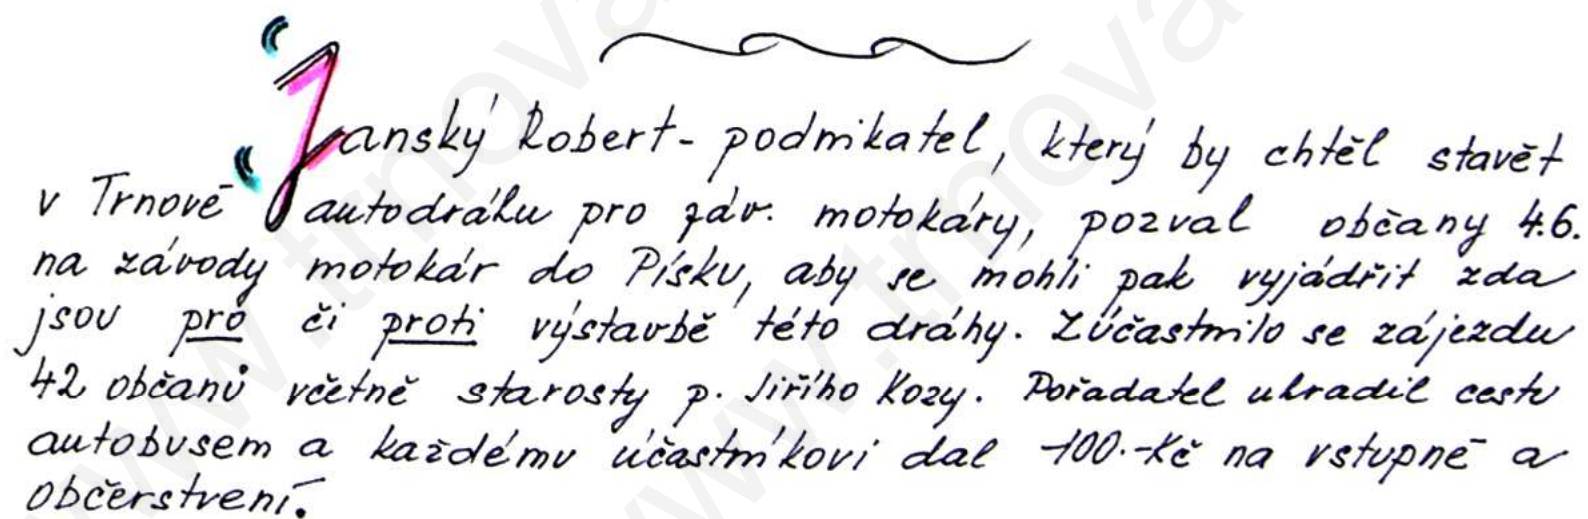 Janský Robert - podnikatel, který by chtěl stavět
v Trnové autodráhu pro záv. motokáry, pozval občany 4.6.
na závody motokár do Písku, aby se mohli pak vyjádřit zda
jsou pro či proti výstavbě této dráhy. Zúčastnilo se zájezdu
42 občanů včetně starosty p. Jiřího Kozy. Pořadatel uhradil cestu
autobusem a každému účastníkovi dal 100.-Kč na vstupné a
občerstvení.